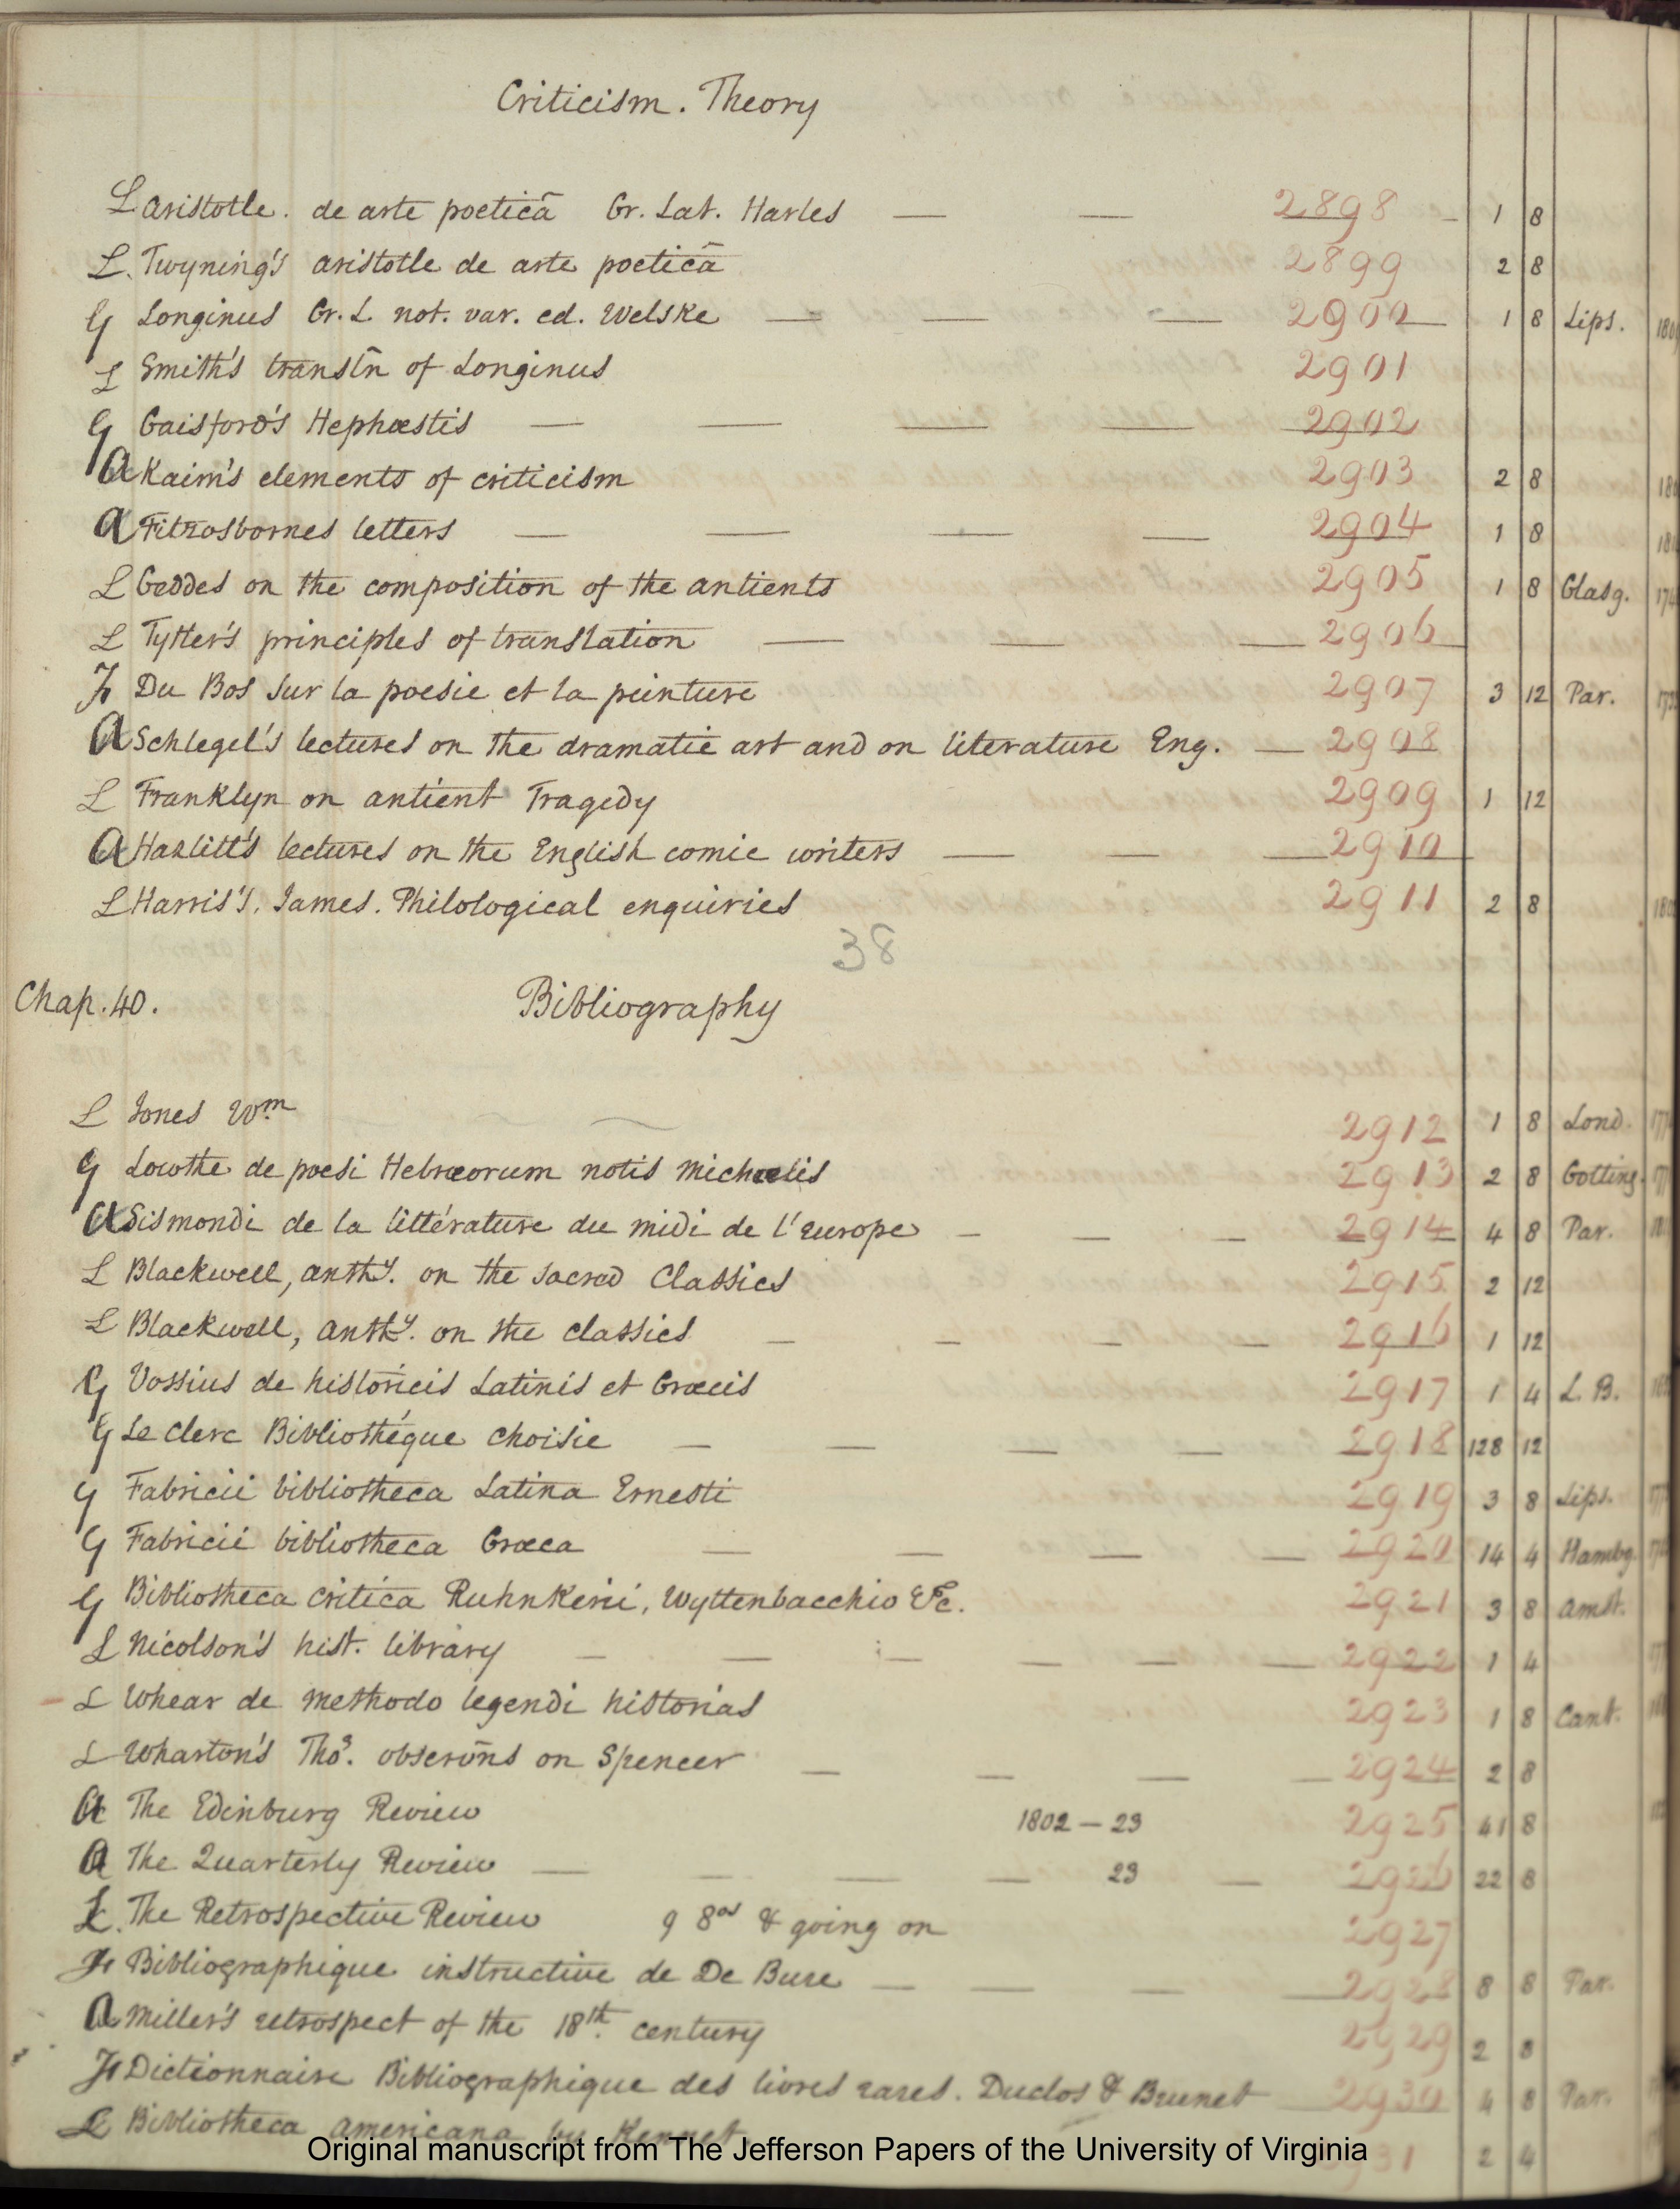 Criticism. Theory
L Aristotle. de arte poeticâ Gr. Lat. Harles — — 2898 1 8
L. Twyning's Aristotle de arte poeticâ 2899 2 8
G Longinus Gr. L. not. var. ed. Weiske — — — 2900 1 8 Lips.
L Smith's translñ of Longinus 2901
G Gaisford's Hephæstis — — — — 2902
A Kaim's elements of criticism 2903 2 8
A Fitzosbornes letters — — — — 2904 1 8
L Geddes on the composition of the antients 2905 1 8 Glasg.
L Tytler's principles of translation — — — 2906
Fr Du Bos sur la poesie et la peinture 2907 3 12 Par.
A Schlegel's lectures on the dramatic art and on literature Eng. — 2908
L Franklyn on antient Tragedy 2909 1 12
A Hazlitt's lectures on the English comic writers — — — 2910
L Harris's. James. Philological enquiries 2911 2 8
38
Chap. 40. Bibliography
L Jones Wm 2912 1 8 Lond.
G Lowthe de poesi Hebræorum notis Michaelis 2913 2 8 Gotting.
A Sismondi de la littérature du midi de l'Europe — — — 2914 4 8 Par.
L Blackwell, Anthy. on the sacred Classics 2915 2 12
L Blackwell, Anthy. on the classics — — — — 2916 1 12
G Vossius de historicis Latinis et Græcis 2917 1 4 L. B.
G Le Clerc Bibliothéque choisie — — — — 2918 128 12
G Fabricii bibliotheca Latina Ernesti 2919 3 8 Lips.
G Fabricii bibliotheca Græca — — — — 2920 14 4 Hambg.
G Bibliotheca critica Ruhnkenii, Wyttenbacchio &c. 2921 3 8 Amst.
L Nicolson's hist. library — — — — — — 2922 1 4
L Whear de methodo legendi historias 2923 1 8 Cant.
L Wharton's Thos. observñs on Spencer — — — — 2924 2 8
A The Edinburg Review 1802 – 23 2925 41 8
A The Quarterly Review — — — — 23 — 2926 22 8
L. The Retrospective Review 9 8os & going on 2927
Fr Bibliographique instructive de De Bure — — — — 2928 8 8 Par.
A Miller's retrospect of the 18th. century 2929 2 8
Fr Dictionnaire Bibliographique des livres rares. Duclos & Brunet — 2930 4 8 Par.
L Bibliotheca Americana by Kennet 2931 2 4
Original manuscript from The Jefferson Papers of the University of Virginia